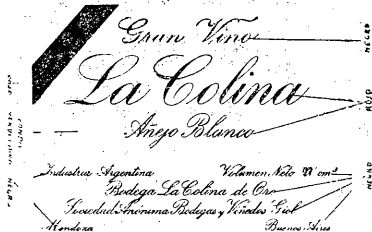 Gran Vino
La Colina
Añejo Blanco
Industria Argentina Volumen Neto cm³
Bodega La Colina de Oro
Sociedad Anónima Bodegas y Viñedos Giol
Mendoza Buenos Aires
NEGRO
ROJO
NEGRO
FONDO
NEGRO